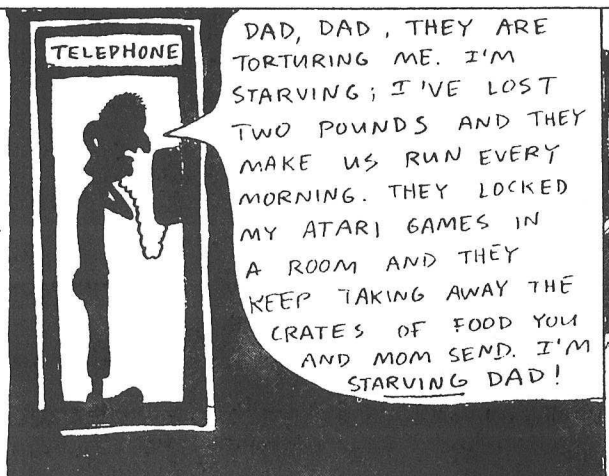 TELEPHONE
DAD, DAD, THEY ARE
TORTURING ME. I'M
STARVING; I'VE LOST
TWO POUNDS AND THEY
MAKE US RUN EVERY
MORNING. THEY LOCKED
MY ATARI GAMES IN
A ROOM AND THEY
KEEP TAKING AWAY THE
CRATES OF FOOD YOU
AND MOM SEND. I'M
STARVING DAD!